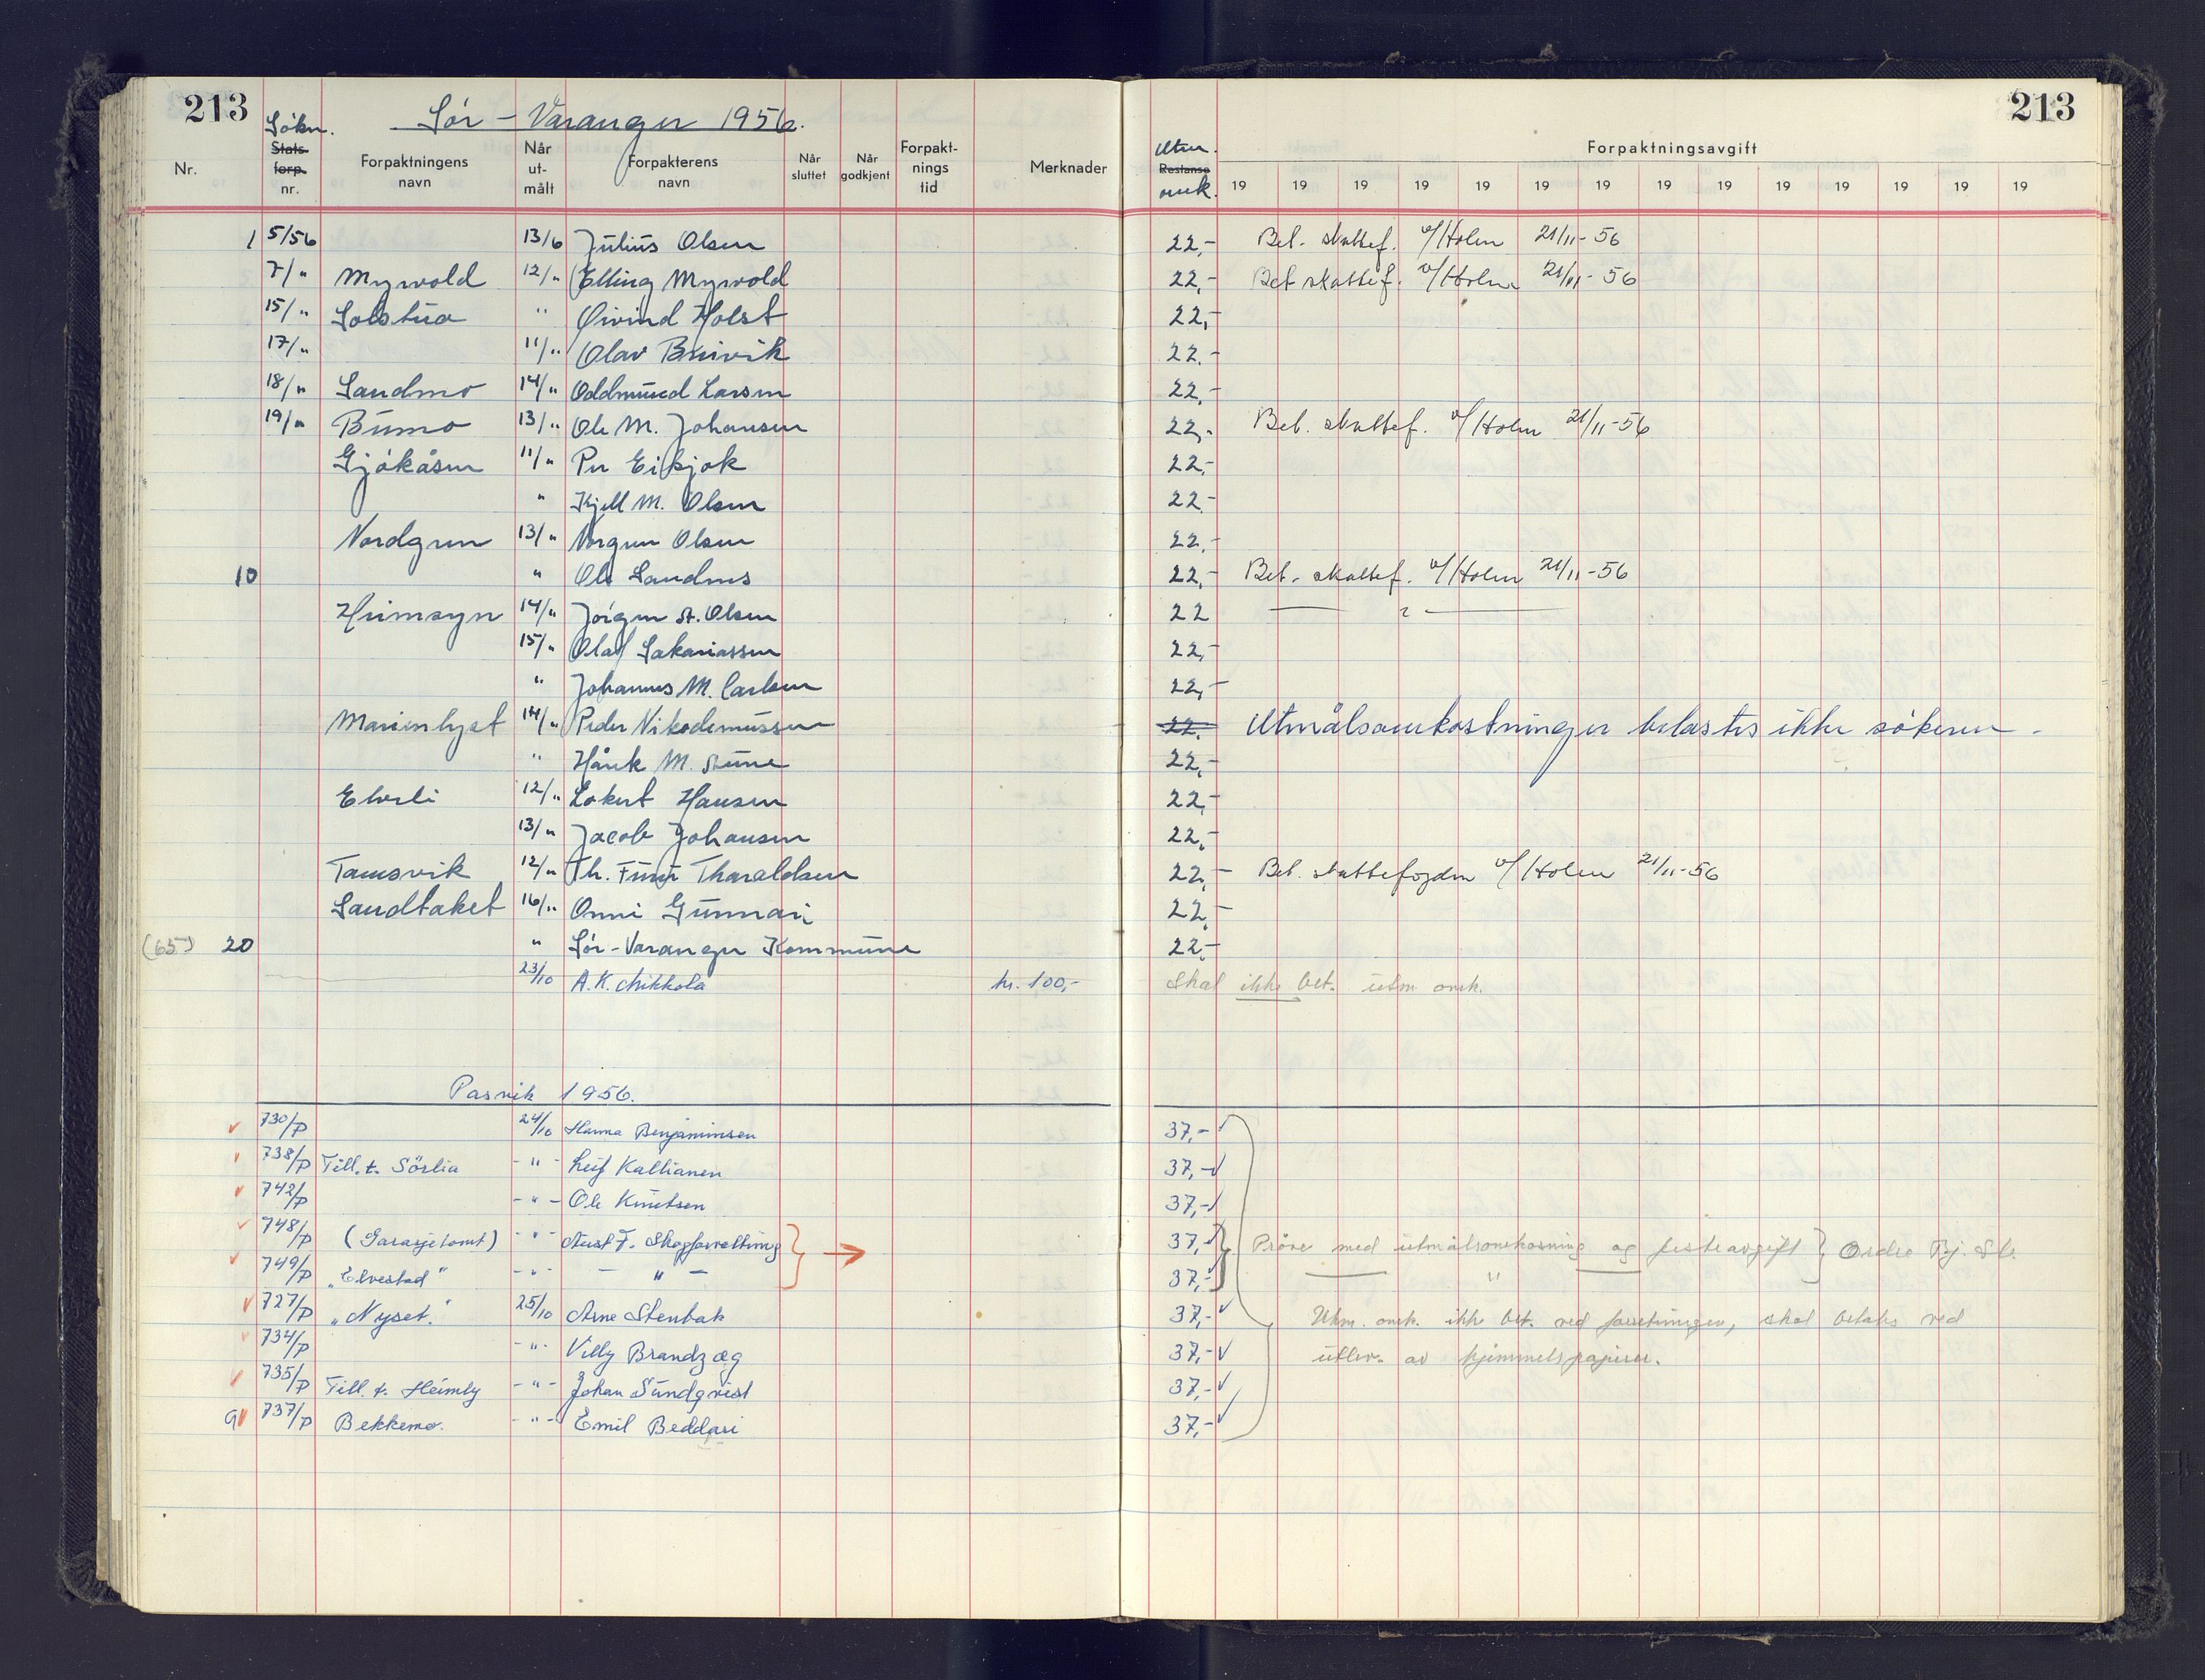 213 Søkn. Sør-Varanger 1956. 213
Nr. Stats- forp. nr. Forpaktningens navn Når ut- målt Forpakterens navn Når sluttet Når godkjent Forpakt- nings tid Merknader Utm. Restanse omk. Forpaktningsavgift
19 19 19 19 19 19 19 19 19 19 19 19 19 19
1 5/56 13/6 Julius Olsen 22,- Bet. skattef. v/Holm 21/11-56
7/" Myrvold 12/" Elling Myrvold 22,- Bet skattef. v/Holm 21/11-56
15/" Solstua " Øivind Holst 22,-
17/" 11/" Olav Breivik 22.-
18/" Sandmo 14/" Oddmund Larsen 22,-
19/" Bumo 13/" Ole M. Johansen 22,- Bet. skattef. v/Holm 21/11-56
Gjøkåsen 11/" Per Eikjok 22,-
" Kjell M. Olsen 22-
Nordgren 13/" Norgren Olsen 22,-
10 " Ole Sandnes 22,- Bet. skattef. v/Holm 21/11-56
Heimsyn 14/" Jørgen St. Olsen 22 — " —
15/" Olaf Sakariassen 22,-
" Johannes M. Carlsen 22,-
Marienlyst 14/" Peder Nikodemussen 22. Utmålsomkostninger belastes ikke søkeren -
" Hårek M. Stene 22,-
Elveli 12/" Lokert Hansen 22,-
13/" Jacob Johansen 22,-
Tamsvik 12/" Th. Finn Tharaldsen 22,- Bet. skattefogden v/Holm 21/11-56
Sandtaket 16/" Onni Gunnari 22,-
(65) 20 " Sør-Varanger Kommune 22,-
23/10 A.K. Mikkola kr. 100,- Skal ikke bet. utm omk.
Pasvik 1956.
730/P 24/10 Hanna Benjaminsen 37,-
738/P Till. t. Sørlia - " - Leif Kallianen 37,-
742/P - " - Ole Knutsen 37,-
748/P (Garasjetomt) - " - Aust F. Skogforvaltning 37,- Prøve med utmålsomkosning og festeavgift } Ordre Bj. Sb.
749/P "Elvestad" - " - — " — 37,- — " —
727/P "Nyset." 25/10 Arne Stenbak 37,- Utm. omk. ikke bet. ved forretningen, skal betales ved
734/P - " - Villy Brandzæg 37,- utlev. av hjemmelspapirer.
735/P Till. t. Heimly - " - Johan Sundqvist 37,-
9 737/P Bekkemo. - " - Emil Beddari 37,-